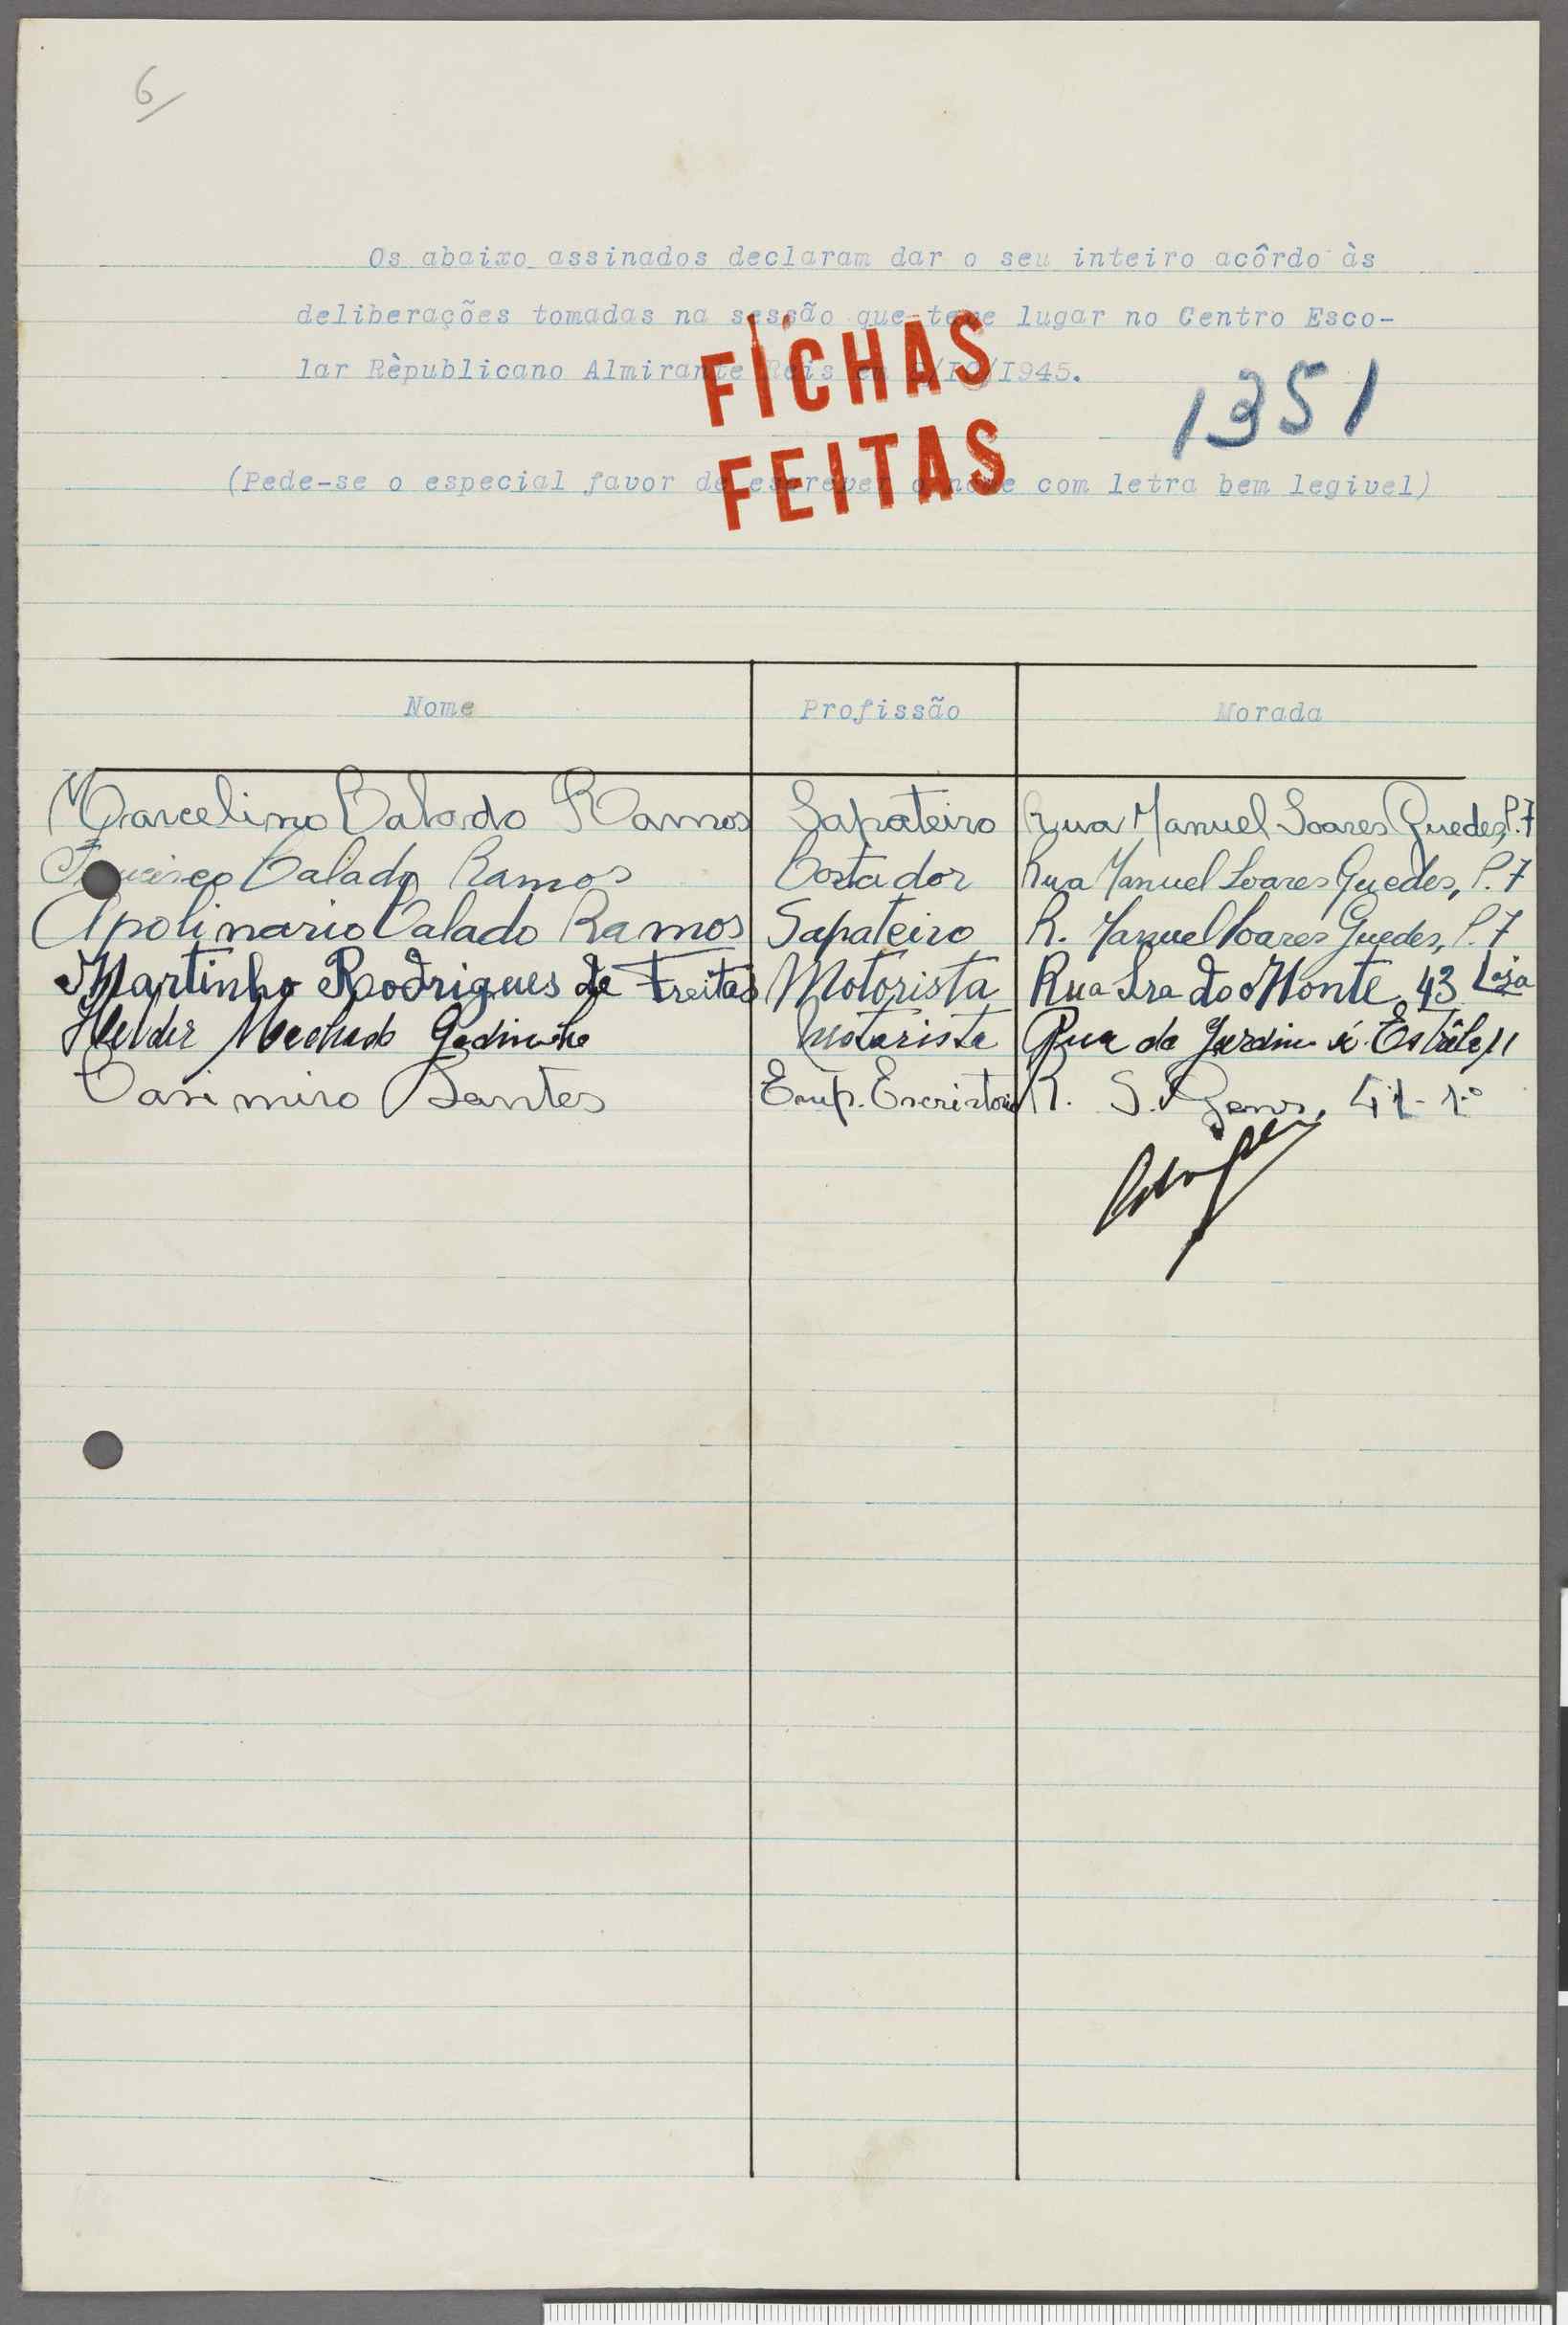 6
Os abaixo assinados declaram dar o seu inteiro acôrdo às
deliberações tomadas na sessão que teve lugar no Centro Esco-
lar Rèpublicano Almirante Reis em /I0/I945.
FICHAS
FEITAS
1351
(Pede-se o especial favor de escrever o nome com letra bem legivel)
Nome Profissão Morada
Marcelino Calado Ramos Sapateiro Rua Manuel Soares Guedes, P. 7
Calado Ramos Cortador Rua Manuel Soares Guedes, P. 7
Apolinario Calado Ramos Sapateiro R. Manuel Soares Guedes, P. 7
Martinho Rodrigues de Freitas Motorista Rua Sra do Monte 43 Loja
Helder Machado Godinho Motorista Rua do Jardim á Estrêla 11
Casimiro Santos Emp. Escritorio R. S. Gens, 41-1º